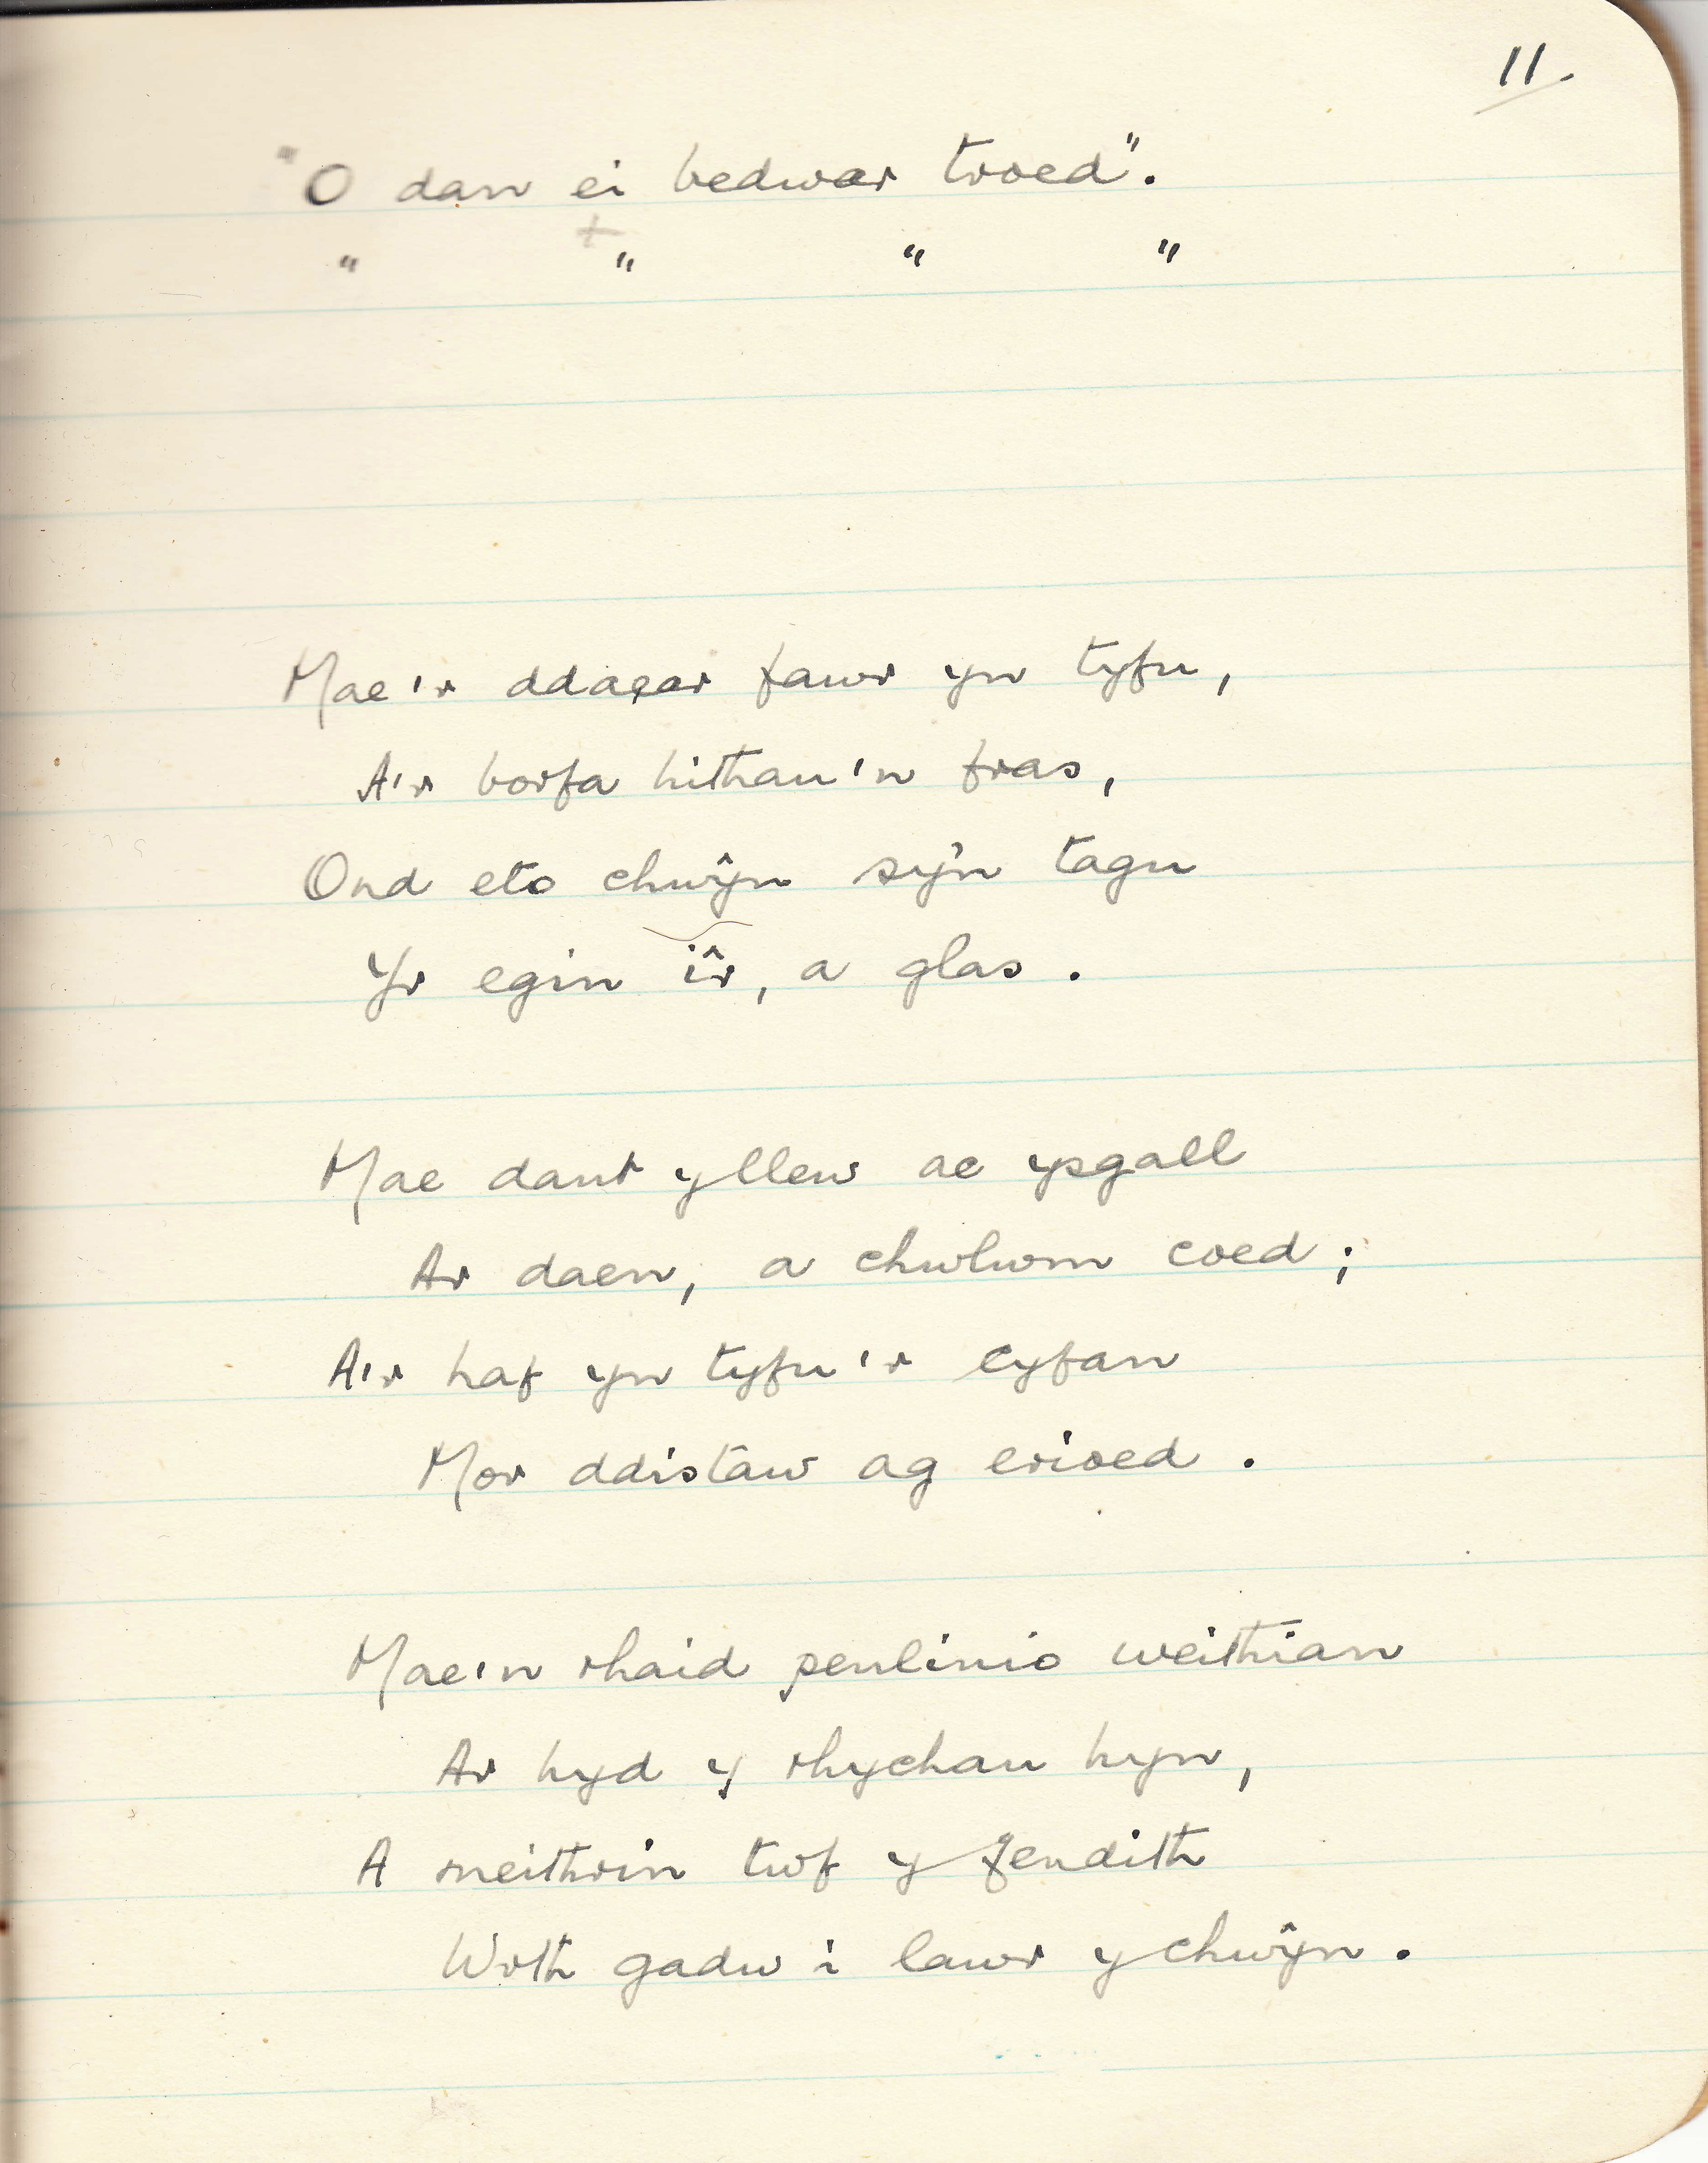 11.
"O dan ei bedwar troed".
" " " "
Mae'r ddaear fawr yn tyfu,
A'r borfa hithau'n fras,
Ond eto chwŷn sy'n tagu
Yr egin îr, a glas.
Mae dant y llew ac ysgall
Ar daen, a chwlwm coed;
A'r haf yn tyfu'r cyfan
Mor ddistaw ag erioed.
Mae'n rhaid penlinio weithian
Ar hyd y rhychau hyn,
A meithrin twf y fendith
Wrth gadw i lawr y chwŷn.